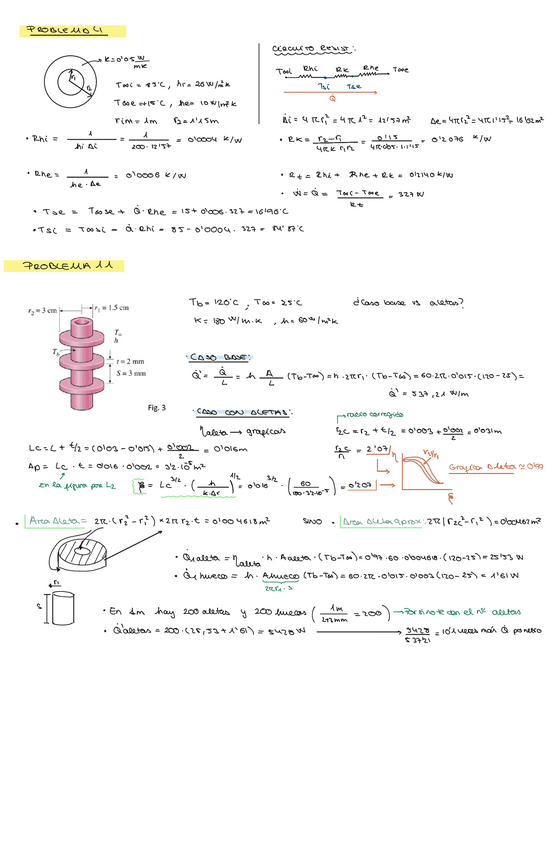 PROBLEMA 4
K=0'05 W/mK
r1
r2
T∞i = 85°C , hi = 20 W/m²K
T∞e = 15°C , he = 10 W/m²K
r1 = 1m r2 = 1'15m
CIRCUITO RESIST:
T∞i Rhi Rk Rhe T∞e
Tsi Tse
Q
Ai = 4πr1² = 4π1² = 12'57m² Ae = 4πr2² = 4π1'15² = 16'62m²
• Rhi = 1/(hi·Ai) = 1/(200·12'57) = 0'0004 K/W
• RK = (r2-r1)/(4πK r1r2) = 0'15/(4π·0'05·1·1'15) = 0'2076 K/W
• Rhe = 1/(he·Ae) = 0'0006 K/W
• Rt = Rhi + Rhe + Rk = 0'2140 K/W
• Ẇ = Q̇ = (T∞i - T∞e)/Rt = 327 W
• Tse = T∞e + Q̇·Rhe = 15 + 0'006·327 = 16'96°C
• Tsi = T∞i - Q̇·Rhi = 85 - 0'0004·327 = 84'87°C
PROBLEMA 11
r2 = 3 cm r1 = 1.5 cm
T∞
h
Tb
t = 2 mm
S = 3 mm
Fig. 3
Tb = 120°C , T∞ = 25°C ¿Caso base vs aletas?
K = 180 W/m·K , h = 60 W/m²K
· CASO BASE:
Q̇' = Q̇/L = h A/L (Tb-T∞) = h·2πr1·(Tb-T∞) = 60·2π·0'015·(120-25) =
Q̇' = 537,21 W/m
· CASO CON ALETAS:
ηaleta → graficas
radio corregido
r2c = r2 + t/2 = 0'003 + 0'002/2 = 0'031m
Lc = L + t/2 = (0'03 - 0'015) + 0'002/2 = 0'016m
r2c/r1 = 2'07
η
r2/r1
Grafica Aleta ≈ 0'97
Ap = Lc · t = 0'016 · 0'002 = 3'2·10⁻⁵ m²
En la figura pone L2
ξ = Lc^3/2 · (h/(K·Ap))^1/2 = 0'016^3/2 · (60/(180·3'2·10⁻⁵)) = 0'207
ξ
• Area Aleta = 2π·(r2² - r1²) + 2π r2·t = 0'004618m²
SINO • Area Aleta aprox: 2π(r2c² - r1²) = 0'00462m²
• Q̇1aleta = ηaleta · h · Aaleta · (Tb-T∞) = 0'97·60·0'004618·(120-25) = 25'53 W
• Q̇1hueco = h · Ahueco (Tb-T∞) = 60·2π·0'015·0'003(120-25) = 1'61 W
2πr1·S
r1
S
• En 1m hay 200 aletas y 200 huecos (1m/(2+3mm) = 200)
• Q̇aletas = 200·(25,53 + 1'61) = 5428 W → 5428/537'21 = 10'1 veces más Q̇ por metro